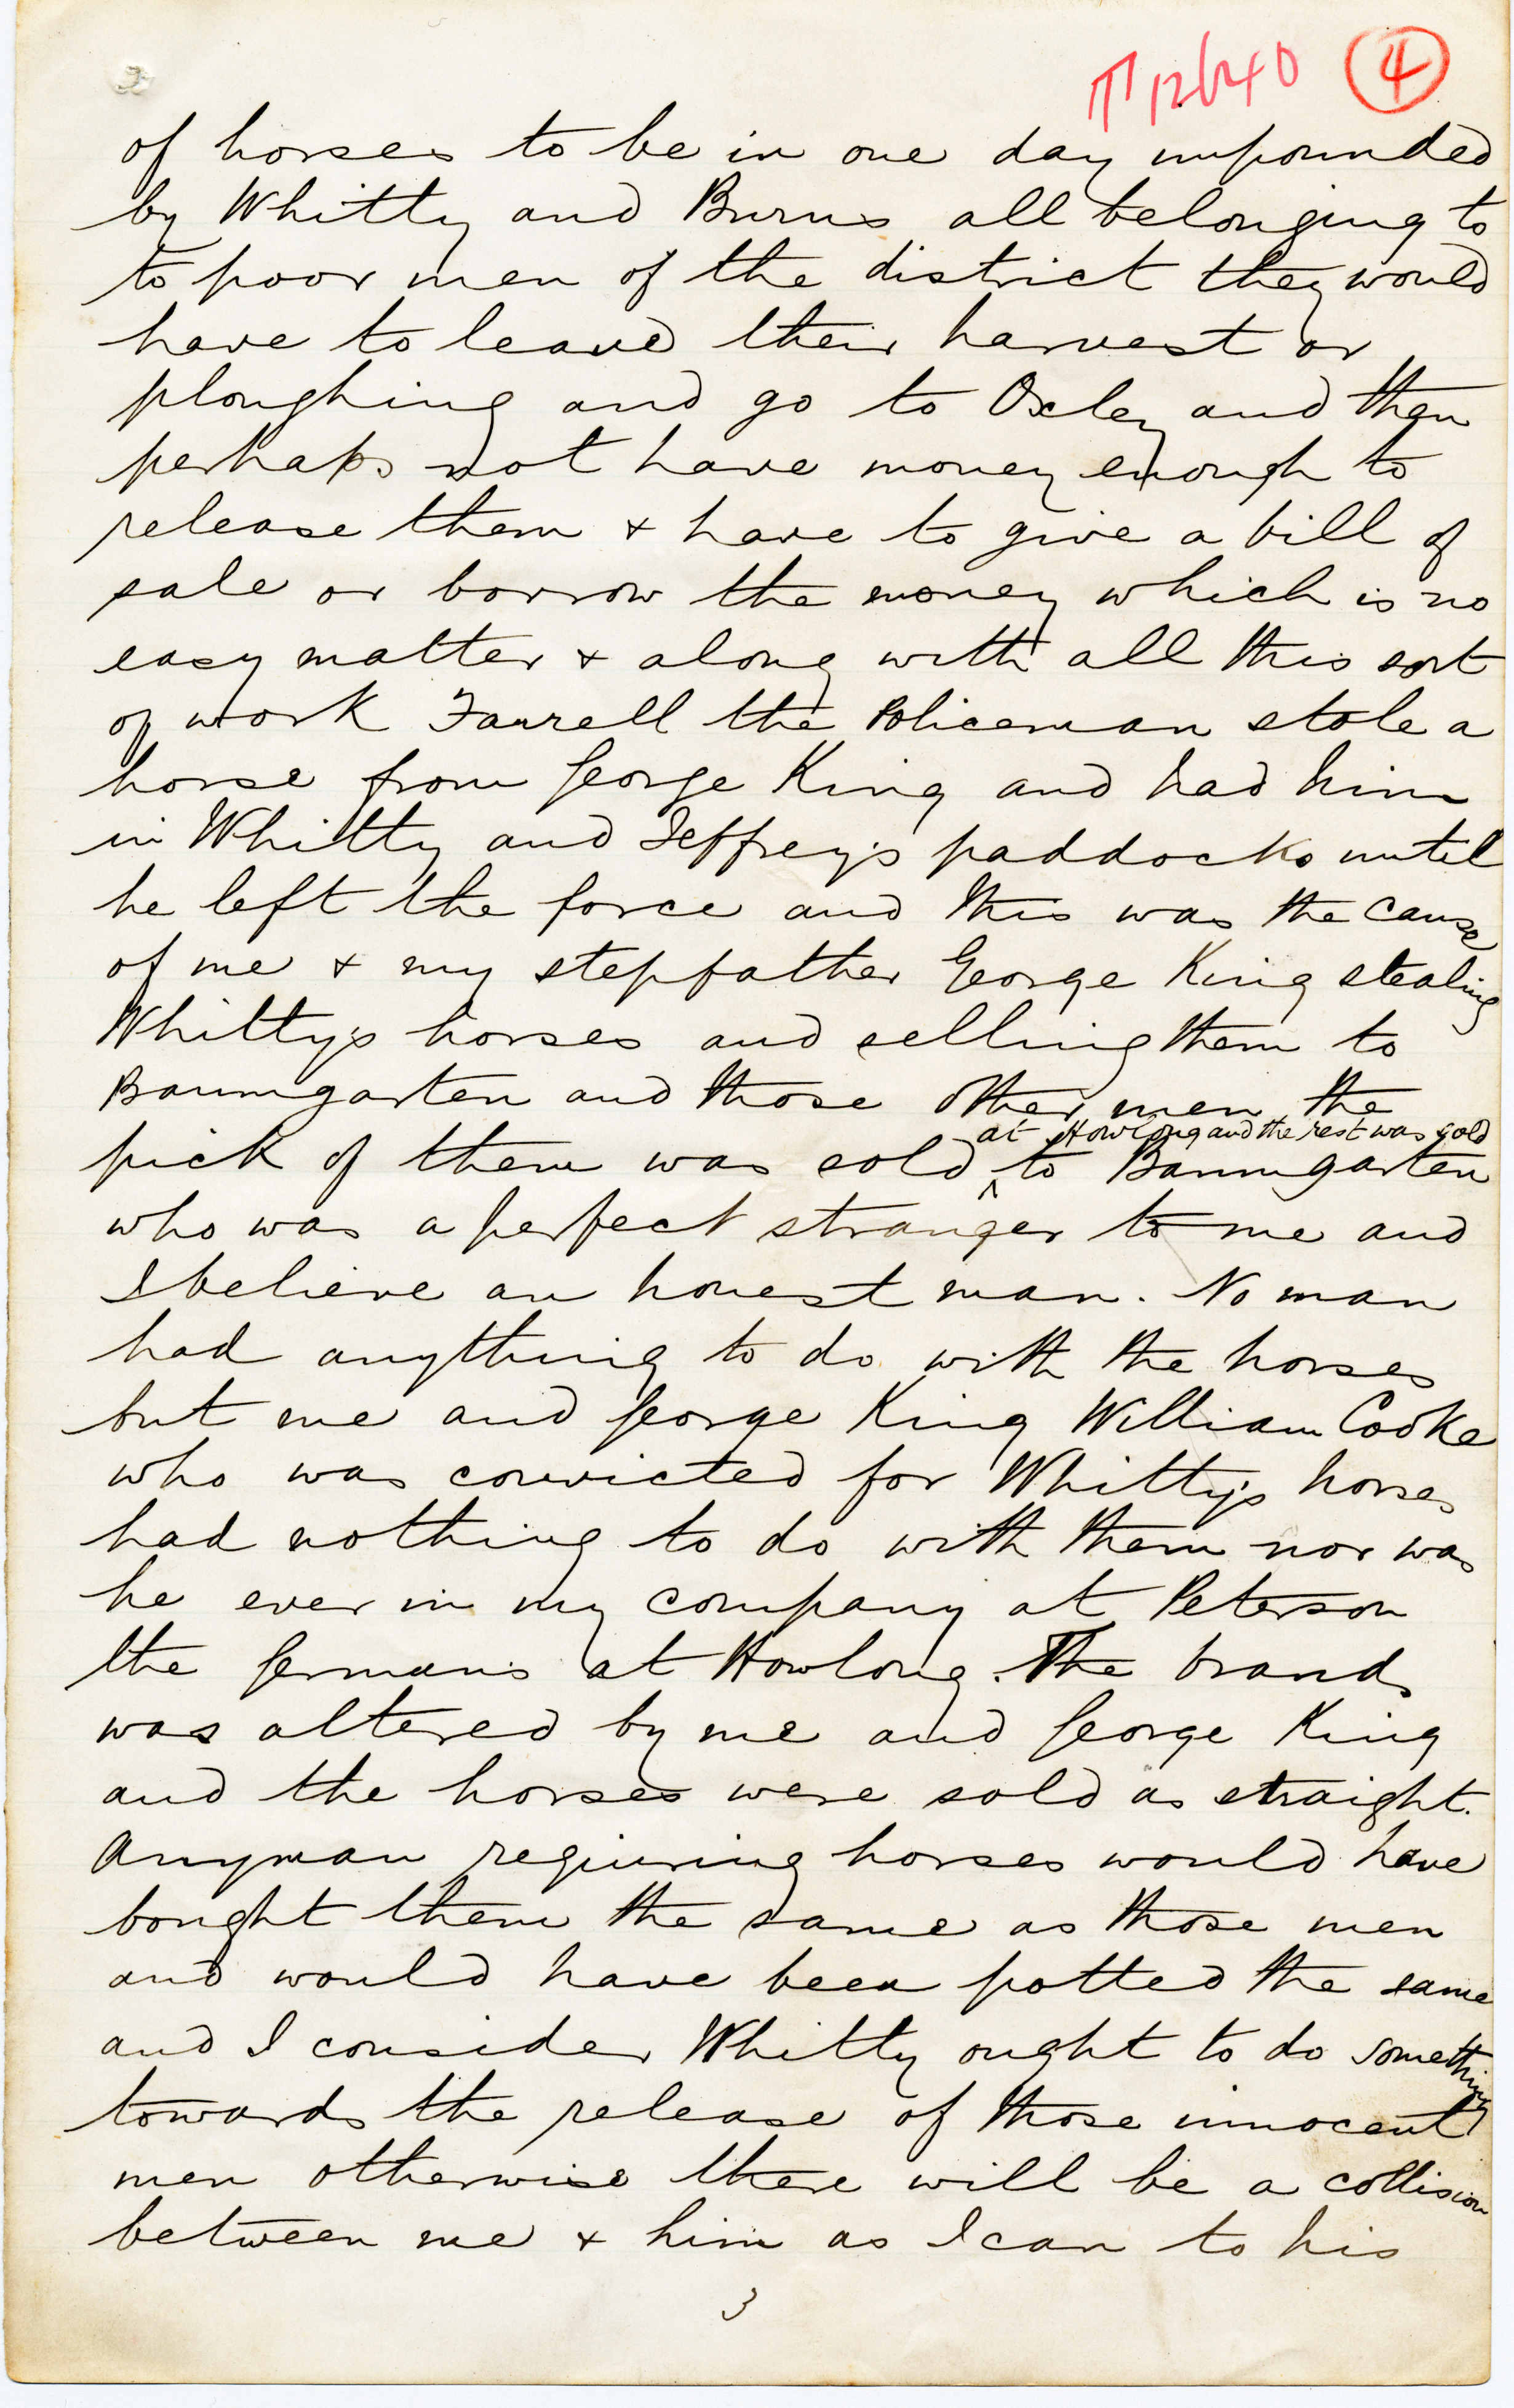 T 12640 4
of horses to be in one day impounded
by Whitty and Burns all belonging to
to poor men of the district they would
have to leave their harvest or
ploughing and go to Oxley and then
perhaps not have money enough to
release them & have to give a bill of
sale or borrow the money which is no
easy matter & along with all this sort
of work Farrell the Policeman stole a
horse from George King and had him
in Whitty and Jeffrey's paddocks until
he left the force and this was the cause
of me & my stepfather George King stealing
Whitty's horses and selling them to
Baumgarten and those other men the
at Howlong and the rest was sold
pick of them was sold ^ to Baumgarten
who was a perfect stranger to me and
I believe an honest man. No man
had anything to do with the horses
but me and George King William Cooke
who was convicted for Whitty's horses
had nothing to do with them nor was
he ever in my company at Peterson
the German's at Howlong. The brands
was altered by me and George King
and the horses were sold as straight.
Anyman requiring horses would have
bought them the same as those men
and would have been potted the same
and I consider Whitty ought to do something
towards the release of those innocent
men otherwise there will be a collision
between me & him as I can to his
3